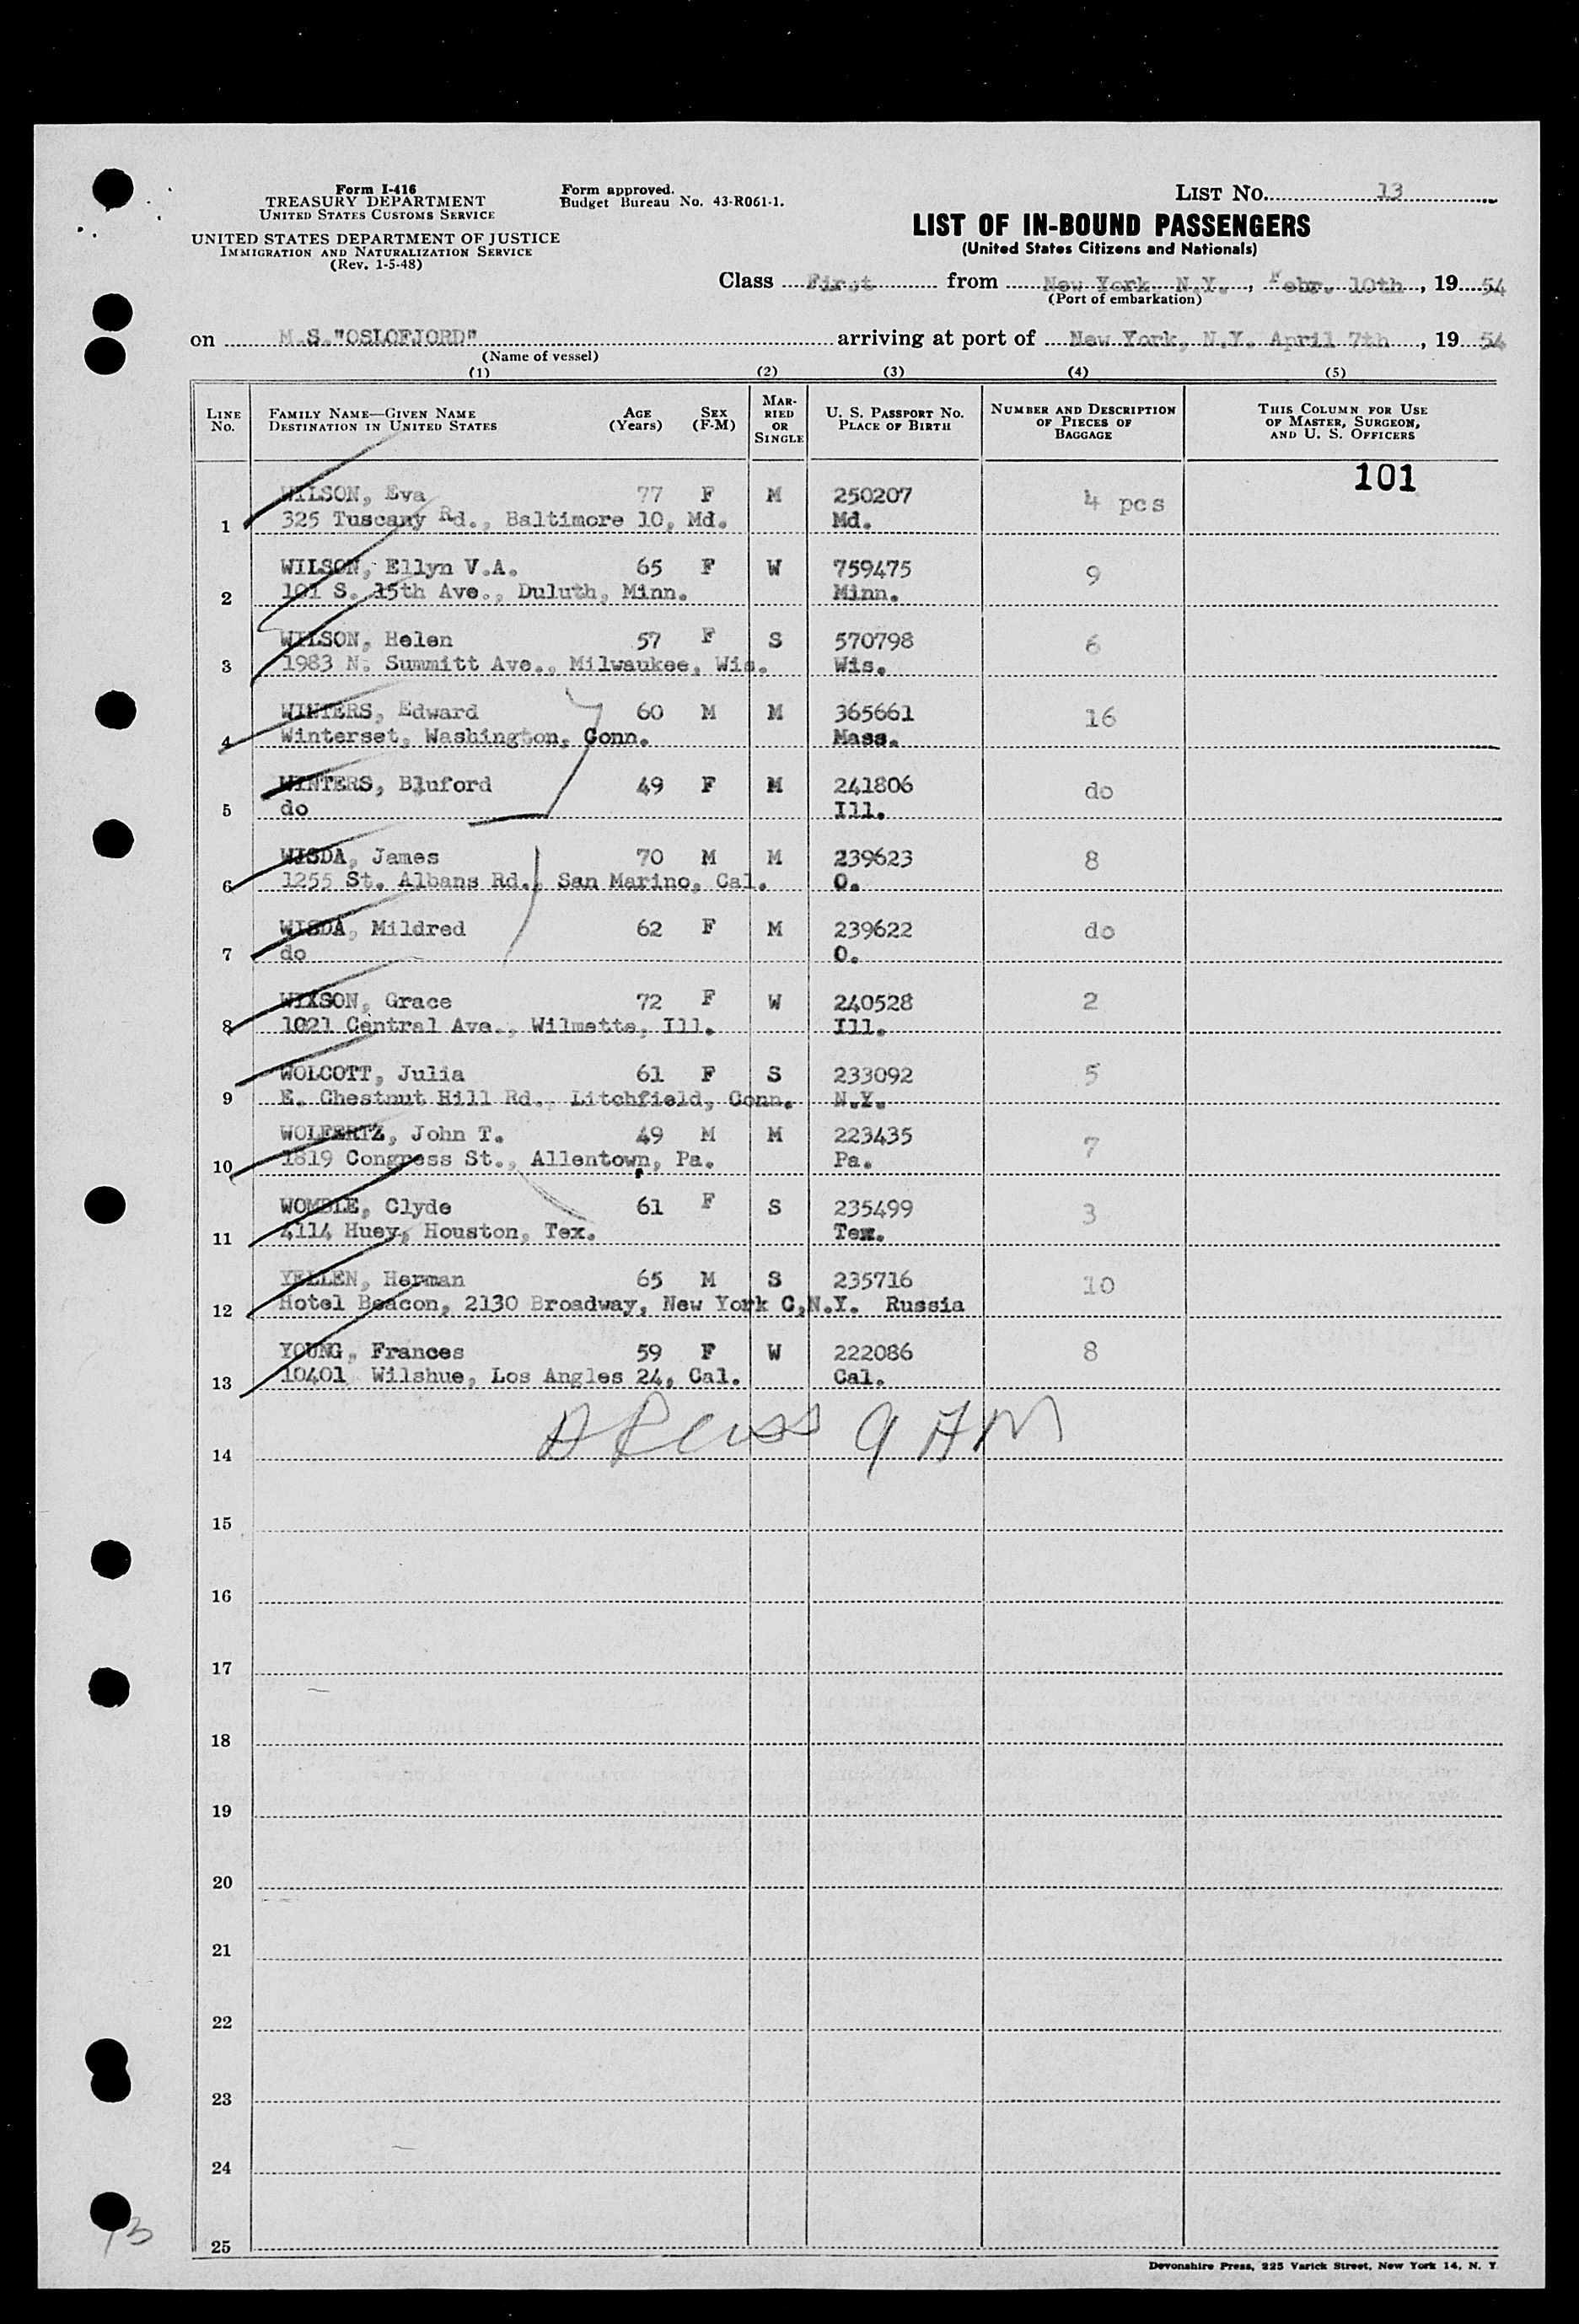 Form I-416
TREASURY DEPARTMENT
UNITED STATES CUSTOMS SERVICE
UNITED STATES DEPARTMENT OF JUSTICE
IMMIGRATION AND NATURALIZATION SERVICE
(Rev. 1-5-48)
Form approved.
Budget Bureau No. 43-R061-1.
LIST NO. 13
LIST OF IN-BOUND PASSENGERS
(United States Citizens and Nationals)
Class First from New York, N.Y., Febr. 10th, 1954
(Port of embarkation)
on M.S."OSLOFJORD" arriving at port of New York, N.Y. April 7th, 1954
(Name of vessel)
(1) (2) (3) (4) (5)
LINE NO. FAMILY NAME—GIVEN NAME DESTINATION IN UNITED STATES AGE (Years) SEX (F-M) MARRIED OR SINGLE U. S. PASSPORT NO. PLACE OF BIRTH NUMBER AND DESCRIPTION OF PIECES OF BAGGAGE THIS COLUMN FOR USE OF MASTER, SURGEON, AND U. S. OFFICERS
101
WILSON, Eva 77 F M 250207 4 pcs
1 325 Tuscany Rd., Baltimore 10, Md. Md.
WILSON, Ellyn V.A. 65 F W 759475 9
2 101 S. 15th Ave., Duluth, Minn. Minn.
WILSON, Helen 57 F S 570798 6
3 1983 N. Summitt Ave., Milwaukee, Wis. Wis.
WINTERS, Edward 60 M M 365661 16
4 Winterset, Washington, Conn. Mass.
WINTERS, Bluford 49 F M 241806 do
5 do Ill.
WISDA, James 70 M M 239623 8
6 1255 St. Albans Rd., San Marino, Cal. O.
WISDA, Mildred 62 F M 239622 do
7 do O.
WIXSON, Grace 72 F W 240528 2
8 1021 Central Ave., Wilmette, Ill. Ill.
WOLCOTT, Julia 61 F S 233092 5
9 E. Chestnut Hill Rd., Litchfield, Conn. N.Y.
WOLFERTZ, John T. 49 M M 223435 7
10 1819 Congress St., Allentown, Pa. Pa.
WOMBLE, Clyde 61 F S 235499 3
11 4114 Huey, Houston, Tex. Tex.
YELLEN, Herman 65 M S 235716 10
12 Hotel Beacon, 2130 Broadway, New York C,N.Y. Russia
YOUNG, Frances 59 F W 222086 8
13 10401 Wilshue, Los Angles 24, Cal. Cal.
9 AM
14
15
16
17
18
19
20
21
22
23
24
25
13
Devonshire Press, 225 Varick Street, New York 14, N. Y.